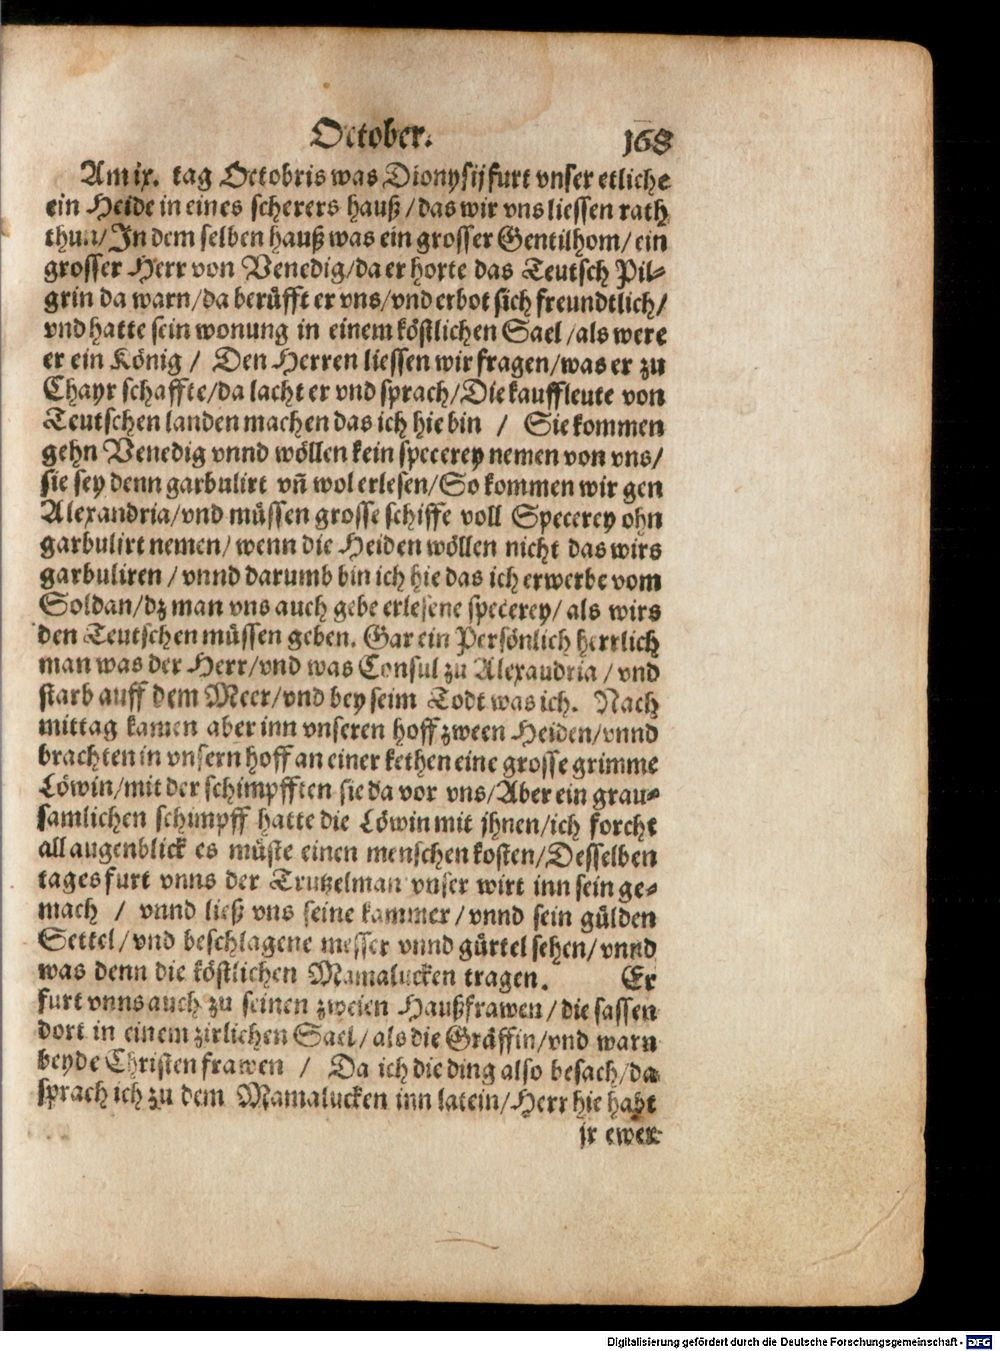 October. 168
Am ix. tag Octobris was Dionysij furt vnser etliche
ein Heide in eines scherers hauß / das wir vns liessen rath
thun / In dem selben hauß was ein grosser Gentilhom / ein
grosser Herr von Venedig / da er horte das Teutsch Pil⸗
grin da warn / da berüfft er vns / vnd erbot sich freundtlich /
vnd hatte sein wonung in einem köstlichen Sael / als were
er ein König / Den Herren liessen wir fragen / was er zu
Chayr schaffte / da lacht er vnd sprach / Die kauffleute von
Teutschen landen machen das ich hie bin / Sie kommen
gehn Venedig vnnd wöllen kein specerey nemen von vns /
sie sey denn garbulirt vñ wol erlesen / So kommen wir gen
Alexandria / vnd müssen grosse schiffe voll Specerey ohn
garbulirt nemen / wenn die Heiden wöllen nicht das wirs
garbuliren / vnnd darumb bin ich hie das ich erwerbe vom
Soldan / dz man vns auch gebe erlesene specerey / als wirs
den Teutschen müssen geben. Gar ein Persönlich herrlich
man was der Herr / vnd was Consul zu Alexandria / vnd
starb auff dem Meer / vnd bey seim Todt was ich. Nach
mittag kamen aber inn vnseren hoff zween Heiden / vnnd
brachten in vnsern hoff an einer kethen eine grosse grimme
Löwin / mit der schimpfften sie da vor vns / Aber ein grau⸗
samlichen schimpff hatte die Löwin mit jhnen / ich forcht
all augenblick es müste einen menschen kosten / Desselben
tages furt vnns der Trutzelman vnser wirt inn sein ge⸗
mach / vnnd ließ vns seine kammer / vnnd sein gülden
Settel / vnd beschlagene messer vnnd gürtel sehen / vnnd
was denn die köstlichen Mamalucken tragen. Er
furt vnns auch zu seinen zweien Haußfrawen / die sassen
dort in einem zirlichen Sael / als die Gräffin / vnd warn
beyde Christen frawen / Da ich die ding also besach / da
sprach ich zu dem Mamalucken inn latein / Herr hie habt
jr ewer
Digitalisierung gefördert durch die Deutsche Forschungsgemeinschaft - DFG